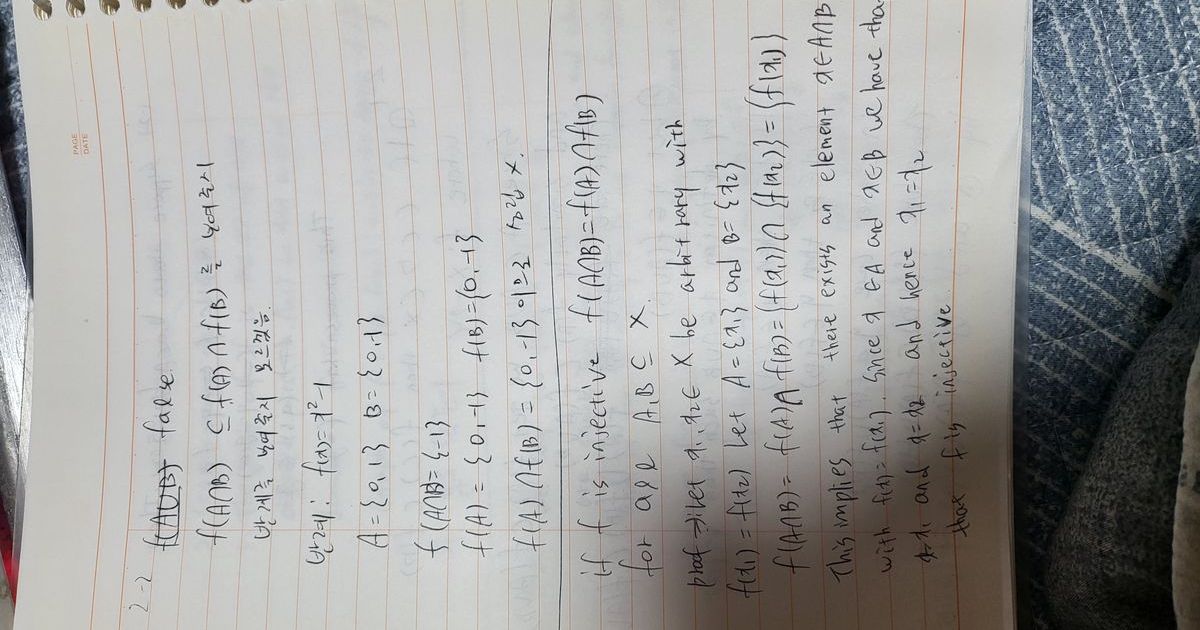 PAGE
DATE
2-2 f(A∪B) false.
f(A∩B) ⊆ f(A)∩f(B)를 보여주시
반례를 보여주지 모르겠음.
반례: f(x)=x²-1
A={0,1} B={0,-1}
f(A∩B)={-1}
f(A)={0,-1} f(B)={0,-1}
f(A)∩f(B)={0,-1}이므로 성립 x.
if f is injective f(A∩B)=f(A)∩f(B)
for all A,B ⊆ X.
proof -> let x₁,x₂∈X be arbitrary with
f(x₁)=f(x₂) Let A={x₁} and B={x₂}
f(A∩B)=f(A)∩f(B)={f(x₁)}∩{f(x₂)}={f(x₁)}
This implies that there exists an element x∈A∩B
with f(x)=f(x₁). Since x∈A and x∈B we have that
x=x₁ and x=x₂ and hence x₁=x₂
that f is injective